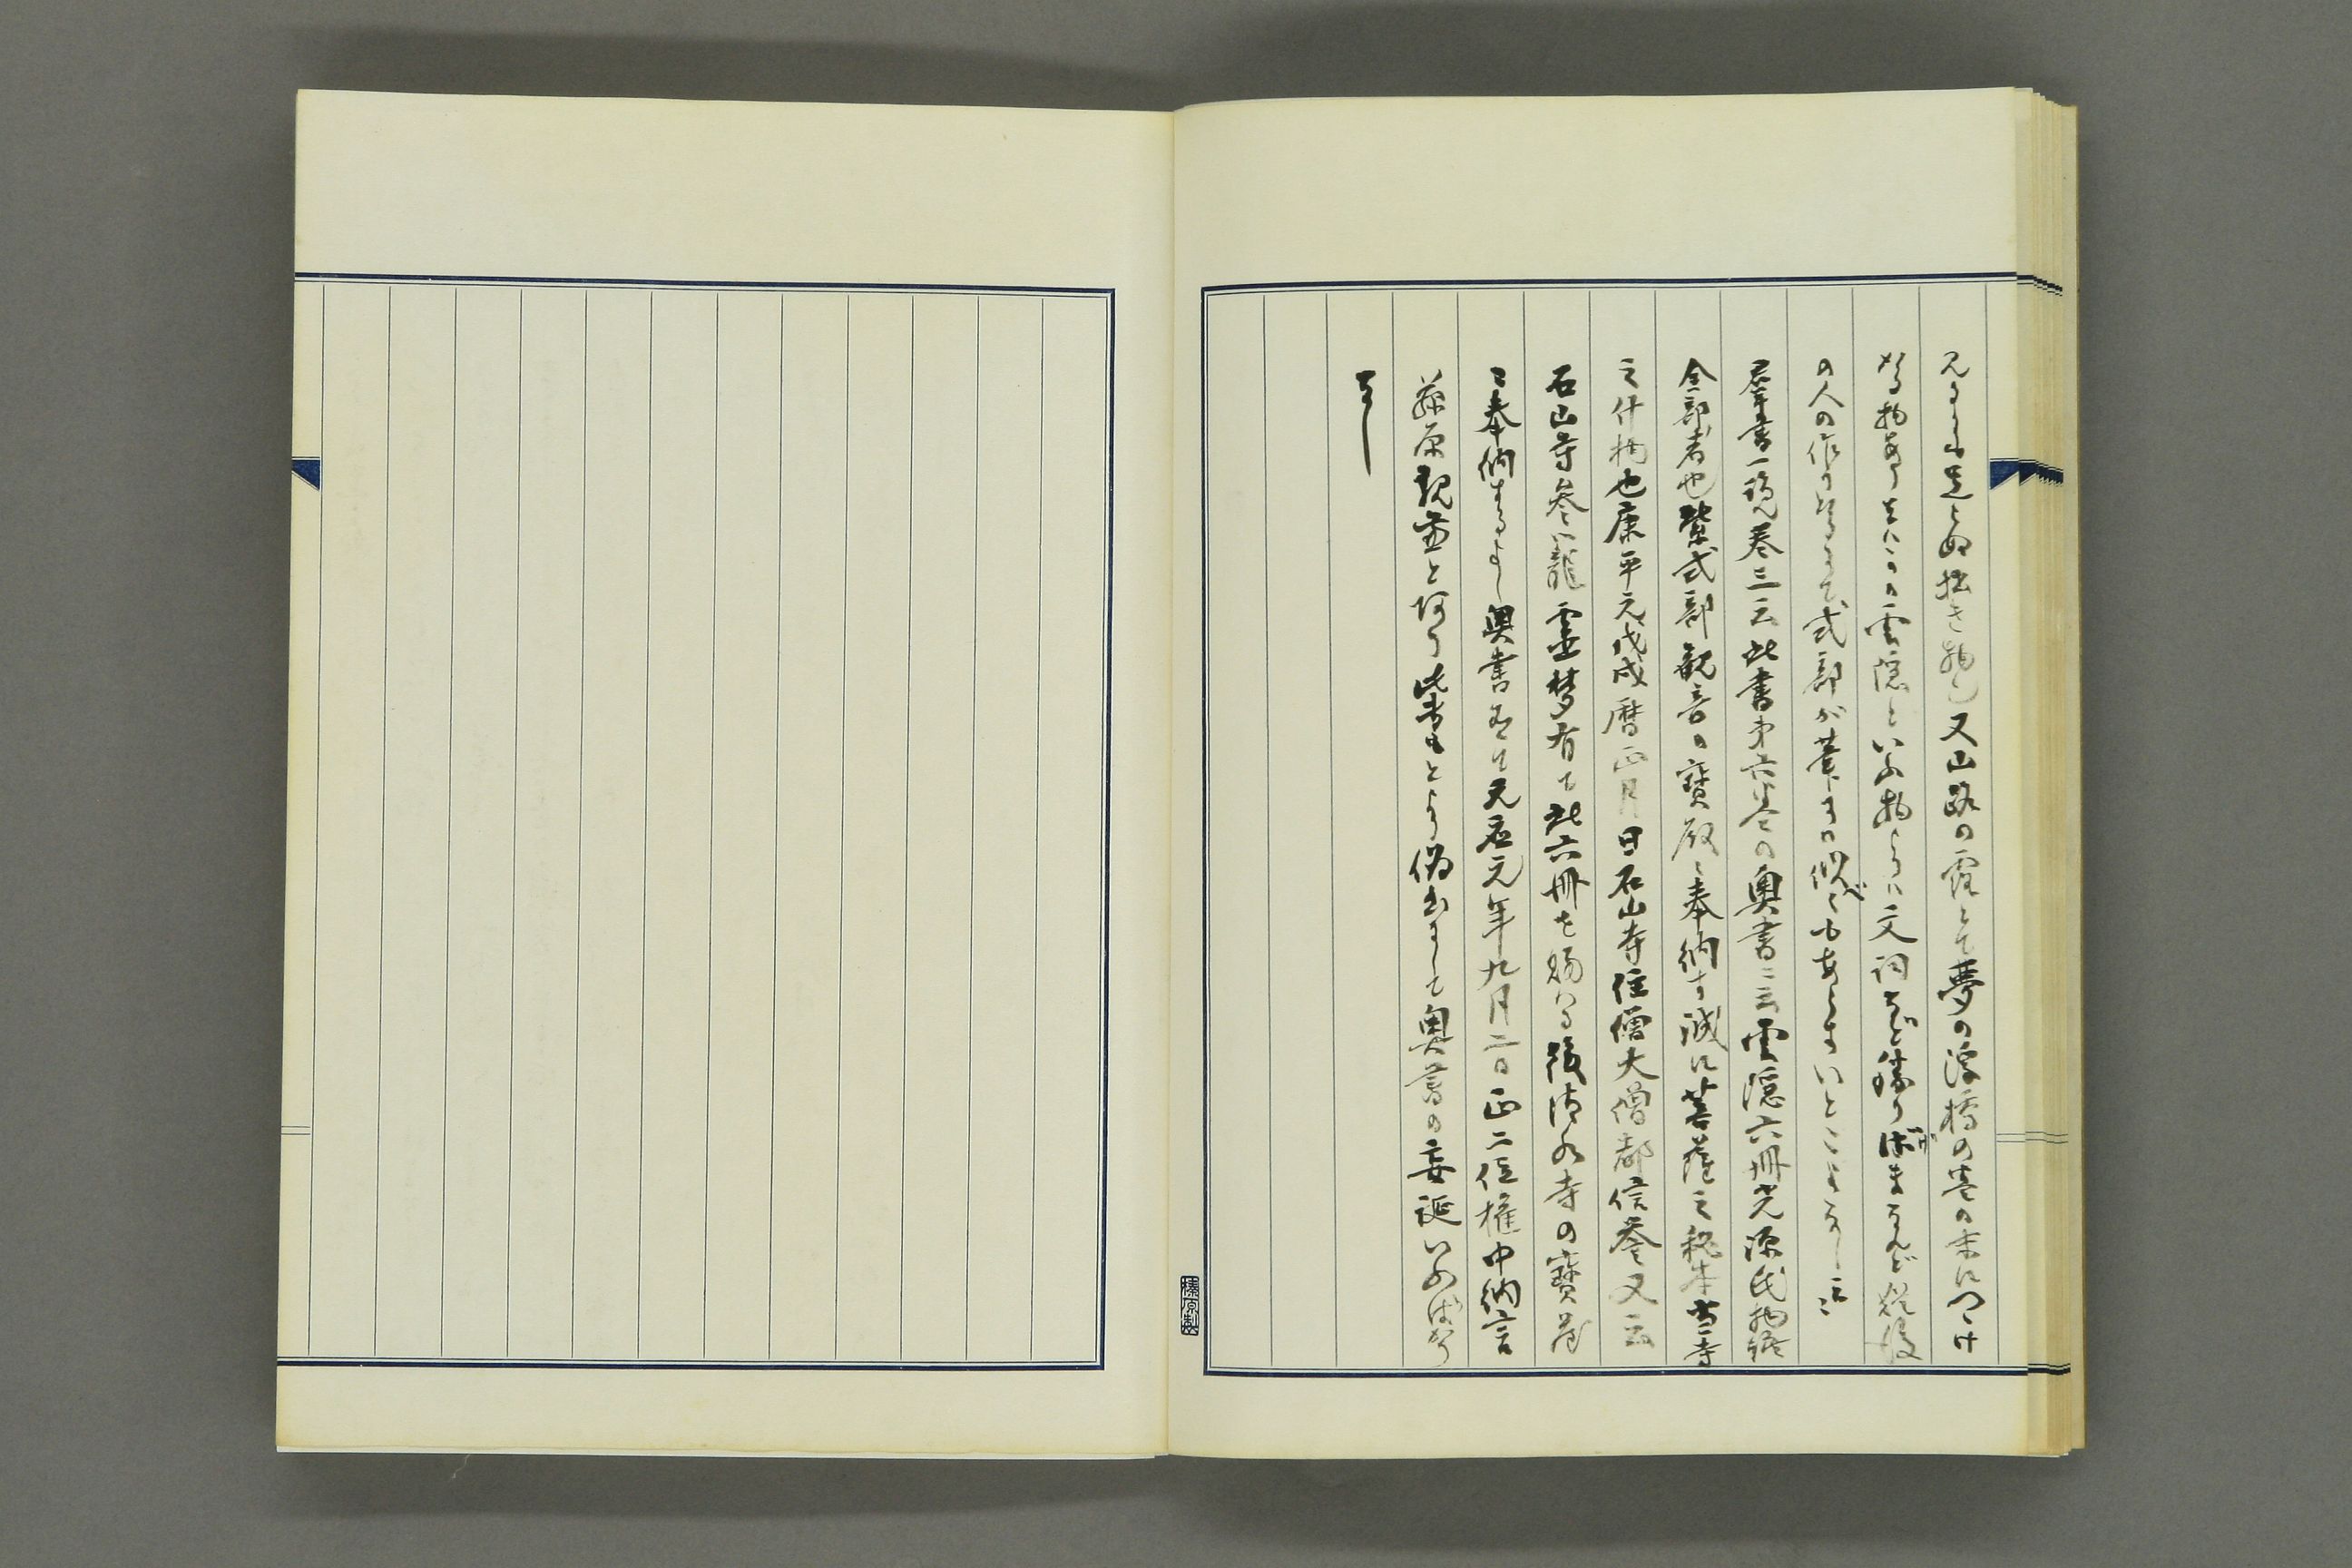 見るに足らぬ拙き物也又山路の露とて夢の浮橋の巻の末につけ
たる物あり又この雲隠といふ物よりは文詞など勝りざまなれど後
の人の作りなるをて式部が筆には似べくもあらず いとこよなし云々
群書一覧巻三云此書第六巻の奥書ニ云雲隠六冊光源氏物語
全部者也紫式部観音の寶殿ニ奉納す誠に菩薩之秘本当寺
之什物也康平元戊戌暦正月日石山寺住僧大僧都信誉又云
石山寺参籠霊夢有て此六冊を賜はる後清水寺の寶蔵
ニ奉納するよし奥書有て天応元年九月二日正二位権中納言
藤原親兼と有り 此書もとより偽書にして奥書の妄誕いふばかり
なし
榛原製